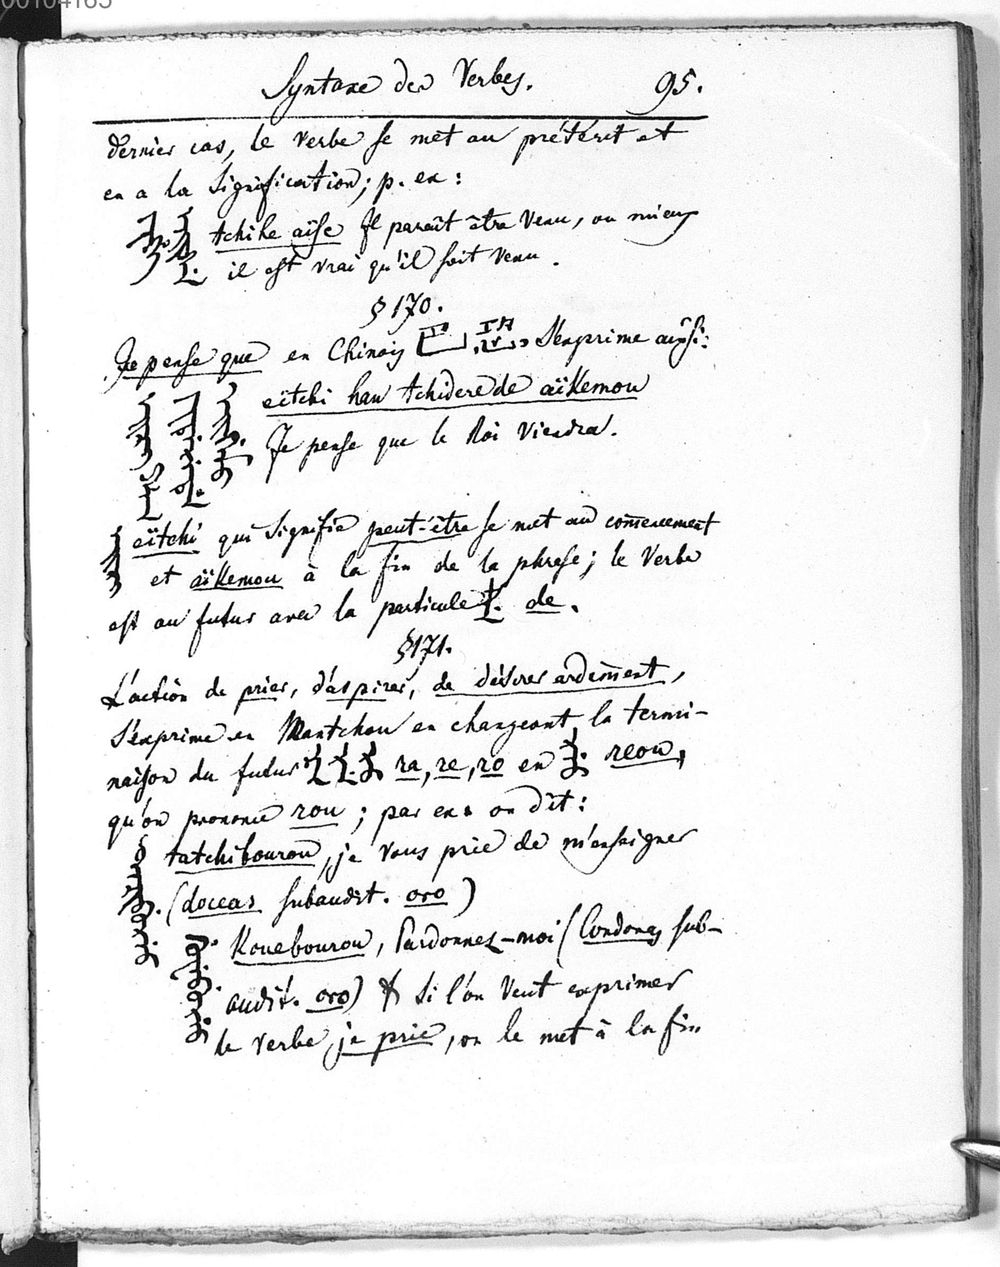 00104165
Syntaxe des Verbes. 95.
dernier cas, le verbe se met au prétérit et
en a la signification; p. ex:
tchihe aïse Il parait être venu, ou mieux
il est vrai qu'il soit venu.
§ 170.
Je pense que en Chinois s'exprime ainsi:
eïtchi han tchidere de aïkemou
Je pense que le Roi viendra.
eïtchi qui signifie peut être se met au com̄encement
et aïkemou à la fin de la phrase; le verbe
est au futur avec la particule de.
§ 171.
L'action de prier, d'aspirer, de désirer ardem̄ent,
s'exprime en Mantchou en changeant la termi-
naison du futur ra, re, ro en reou,
qu'on prononce rou; par ex: on dit:
tatchibourou, je vous prie de m'enseigner
(doceas subaudit. oro)
Kouebourou, Pardonnez-moi (Condones sub-
audit. oro) Si l'on veut exprimer
le verbe je prie, on le met à la fin